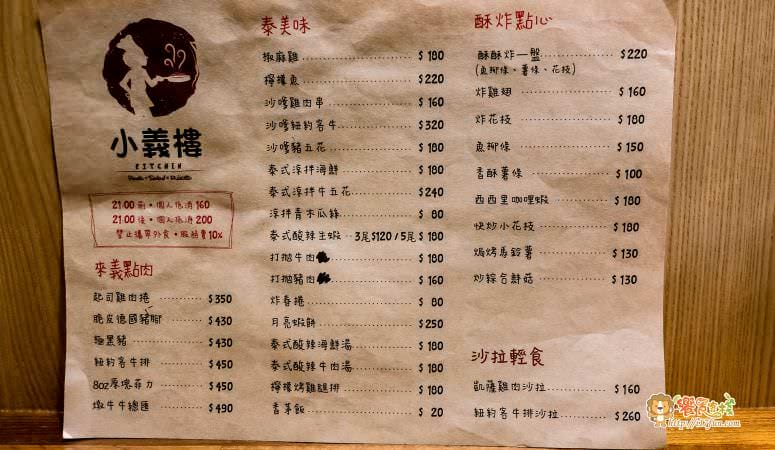 小義樓
KITCHEN
Pasta • Salad • Risotto
21:00 前 • 個人低消 160
21:00 後 • 個人低消 200
禁止攜帶外食 • 服務費 10%
來義點肉
起司雞肉捲 $350
脆皮德國豬腳 $430
極黑豬 $430
紐約客牛排 $450
8oz厚塊菲力 $450
燉牛牛總匯 $490
泰美味
椒麻雞 $ 180
檸檬魚 $220
沙嗲雞肉串 $ 160
沙嗲紐約客牛 $320
沙嗲豬五花 $ 180
泰式涼拌海鮮 $ 180
泰式涼拌牛五花 $240
涼拌青木瓜絲 $ 80
泰式酸辣生蝦 3尾$120 / 5尾$ 180
打拋牛肉 $ 180
打拋豬肉 $ 160
炸春捲 $ 80
月亮蝦餅 $250
泰式酸辣海鮮湯 $ 180
泰式酸辣牛肉湯 $ 180
檸檬烤雞腿排 $ 180
香茅飯 $ 20
酥炸點心
酥酥炸一盤 $220
(魚柳條、薯條、花枝)
炸雞翅 $ 160
炸花枝 $ 180
魚柳條 $ 150
香酥薯條 $ 100
西西里咖哩蝦 $ 180
快炒小花枝 $ 180
焗烤馬鈴薯 $ 130
炒綜合鮮菇 $ 130
沙拉輕食
凱薩雞肉沙拉 $ 160
紐約客牛排沙拉 $ 260